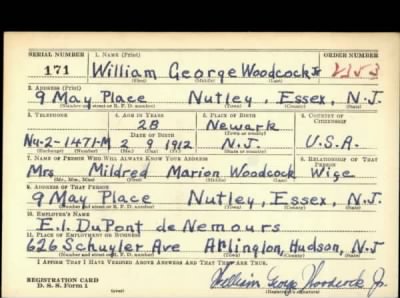 SERIAL NUMBER 1. NAME (Print) ORDER NUMBER
171 William George Woodcock Jr 2153
(First) (Middle) (Last)
2. ADDRESS (Print)
9 May Place Nutley, Essex, N.J.
(Number and street or R. F. D. number) (Town) (County) (State)
3. TELEPHONE 4. AGE IN YEARS 5. PLACE OF BIRTH 6. COUNTRY OF CITIZENSHIP
28 Newark
(Town or county)
DATE OF BIRTH
Nu-2-1471-M 2 9 1912 N.J. U.S.A.
(Exchange) (Number) (Mo.) (Day) (Yr.) (State or country)
7. NAME OF PERSON WHO WILL ALWAYS KNOW YOUR ADDRESS 8. RELATIONSHIP OF THAT PERSON
Mrs. Mildred Marion Woodcock Wife
(Mr., Mrs., Miss) (First) (Middle) (Last)
9. ADDRESS OF THAT PERSON
9 May Place Nutley, Essex, N.J.
(Number and street or R. F. D. number) (Town) (County) (State)
10. EMPLOYER'S NAME
E.I. DuPont de Nemours
11. PLACE OF EMPLOYMENT OR BUSINESS
626 Schuyler Ave Arlington, Hudson, N.J
(Number and street or R. F. D. number) (Town) (County) (State)
I AFFIRM THAT I HAVE VERIFIED ABOVE ANSWERS AND THAT THEY ARE TRUE.
REGISTRATION CARD
D. S. S. Form 1 (over) William George Woodcock Jr.
(Registrant's signature)